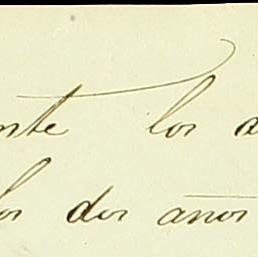 nte los a
los dos años